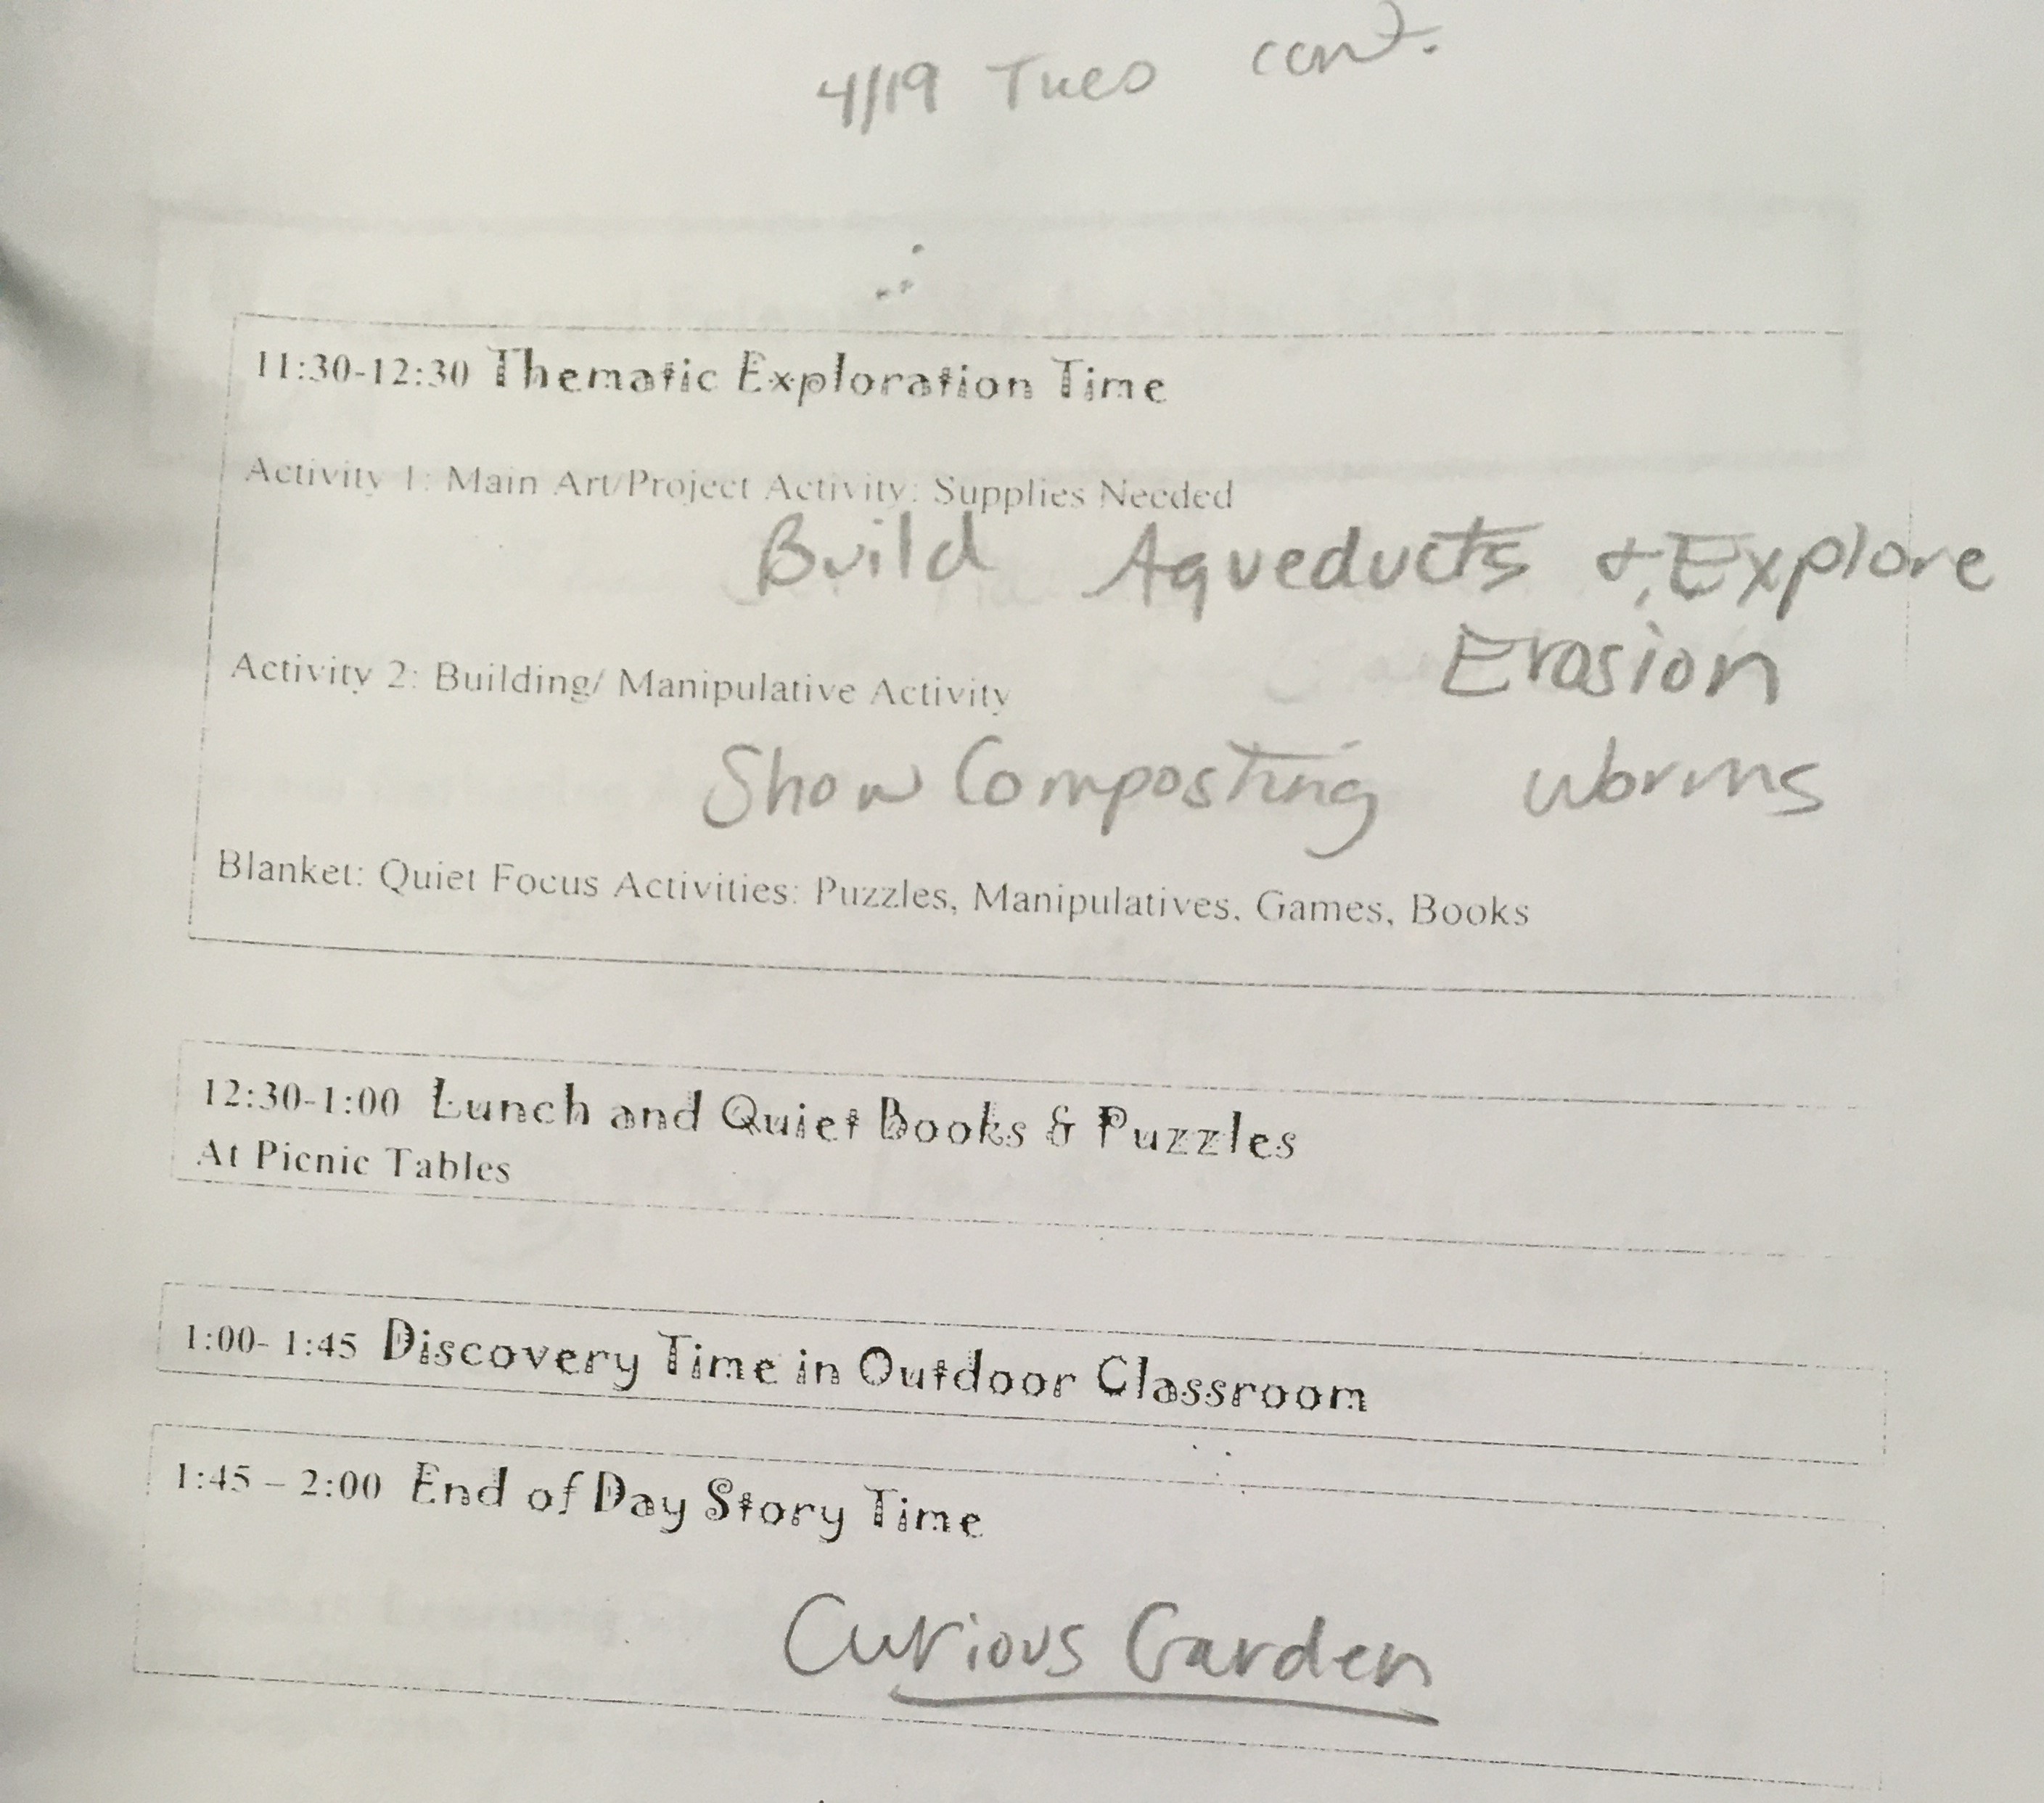 4/19 Tues cont.
11:30-12:30 Thematic Exploration Time
Activity 1: Main Art/Project Activity: Supplies Needed
Build Aqueducts & Explore
Erosion
Activity 2: Building/ Manipulative Activity
Show Composting worms
Blanket: Quiet Focus Activities: Puzzles, Manipulatives, Games, Books
12:30-1:00 Lunch and Quiet Books & Puzzles
At Picnic Tables
1:00- 1:45 Discovery Time in Outdoor Classroom
1:45 – 2:00 End of Day Story Time
Curious Garden